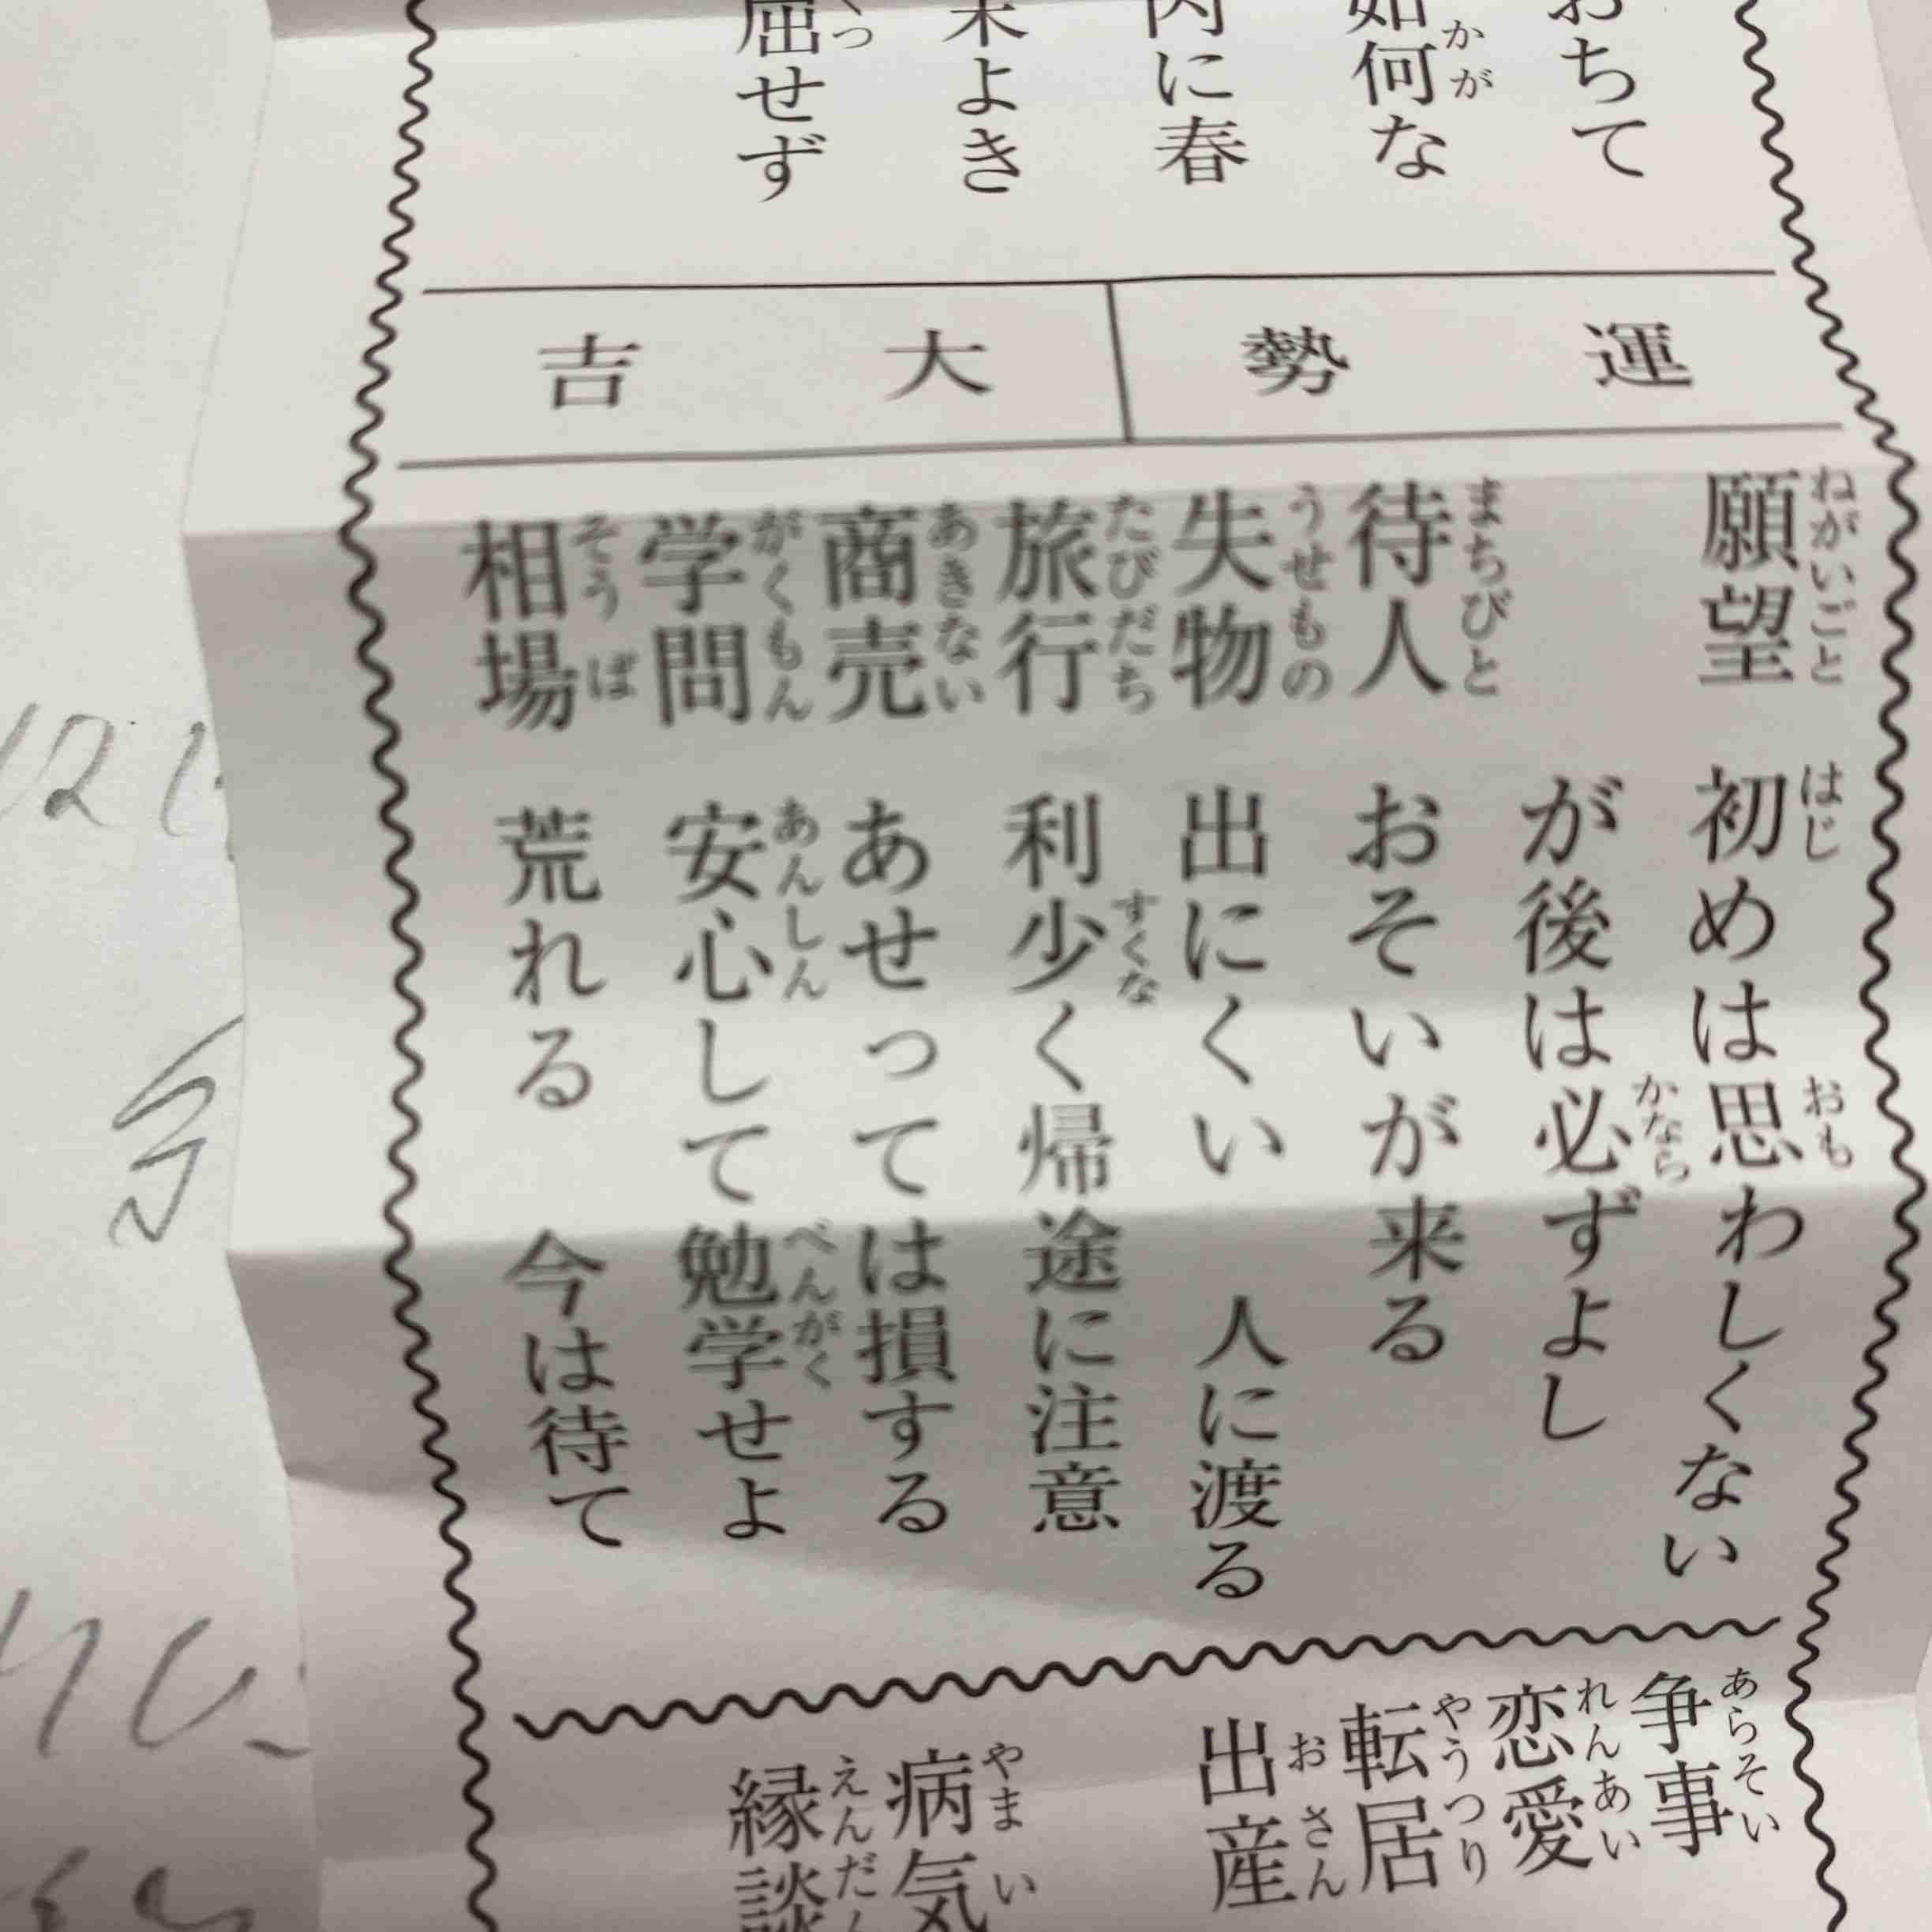 おちて
如何な
内に春
末よき
屈せず
運勢
大吉
願望 初めは思わしくない
が後は必ずよし
待人 おそいが来る
失物 出にくい 人に渡る
旅行 利少く帰途に注意
商売 あせっては損する
学問 安心して勉学せよ
相場 荒れる 今は待て
争事
恋愛
転居
出産
病気
縁談